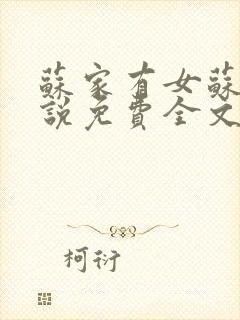 蘇家有女蘇
說免費全文
柯衍